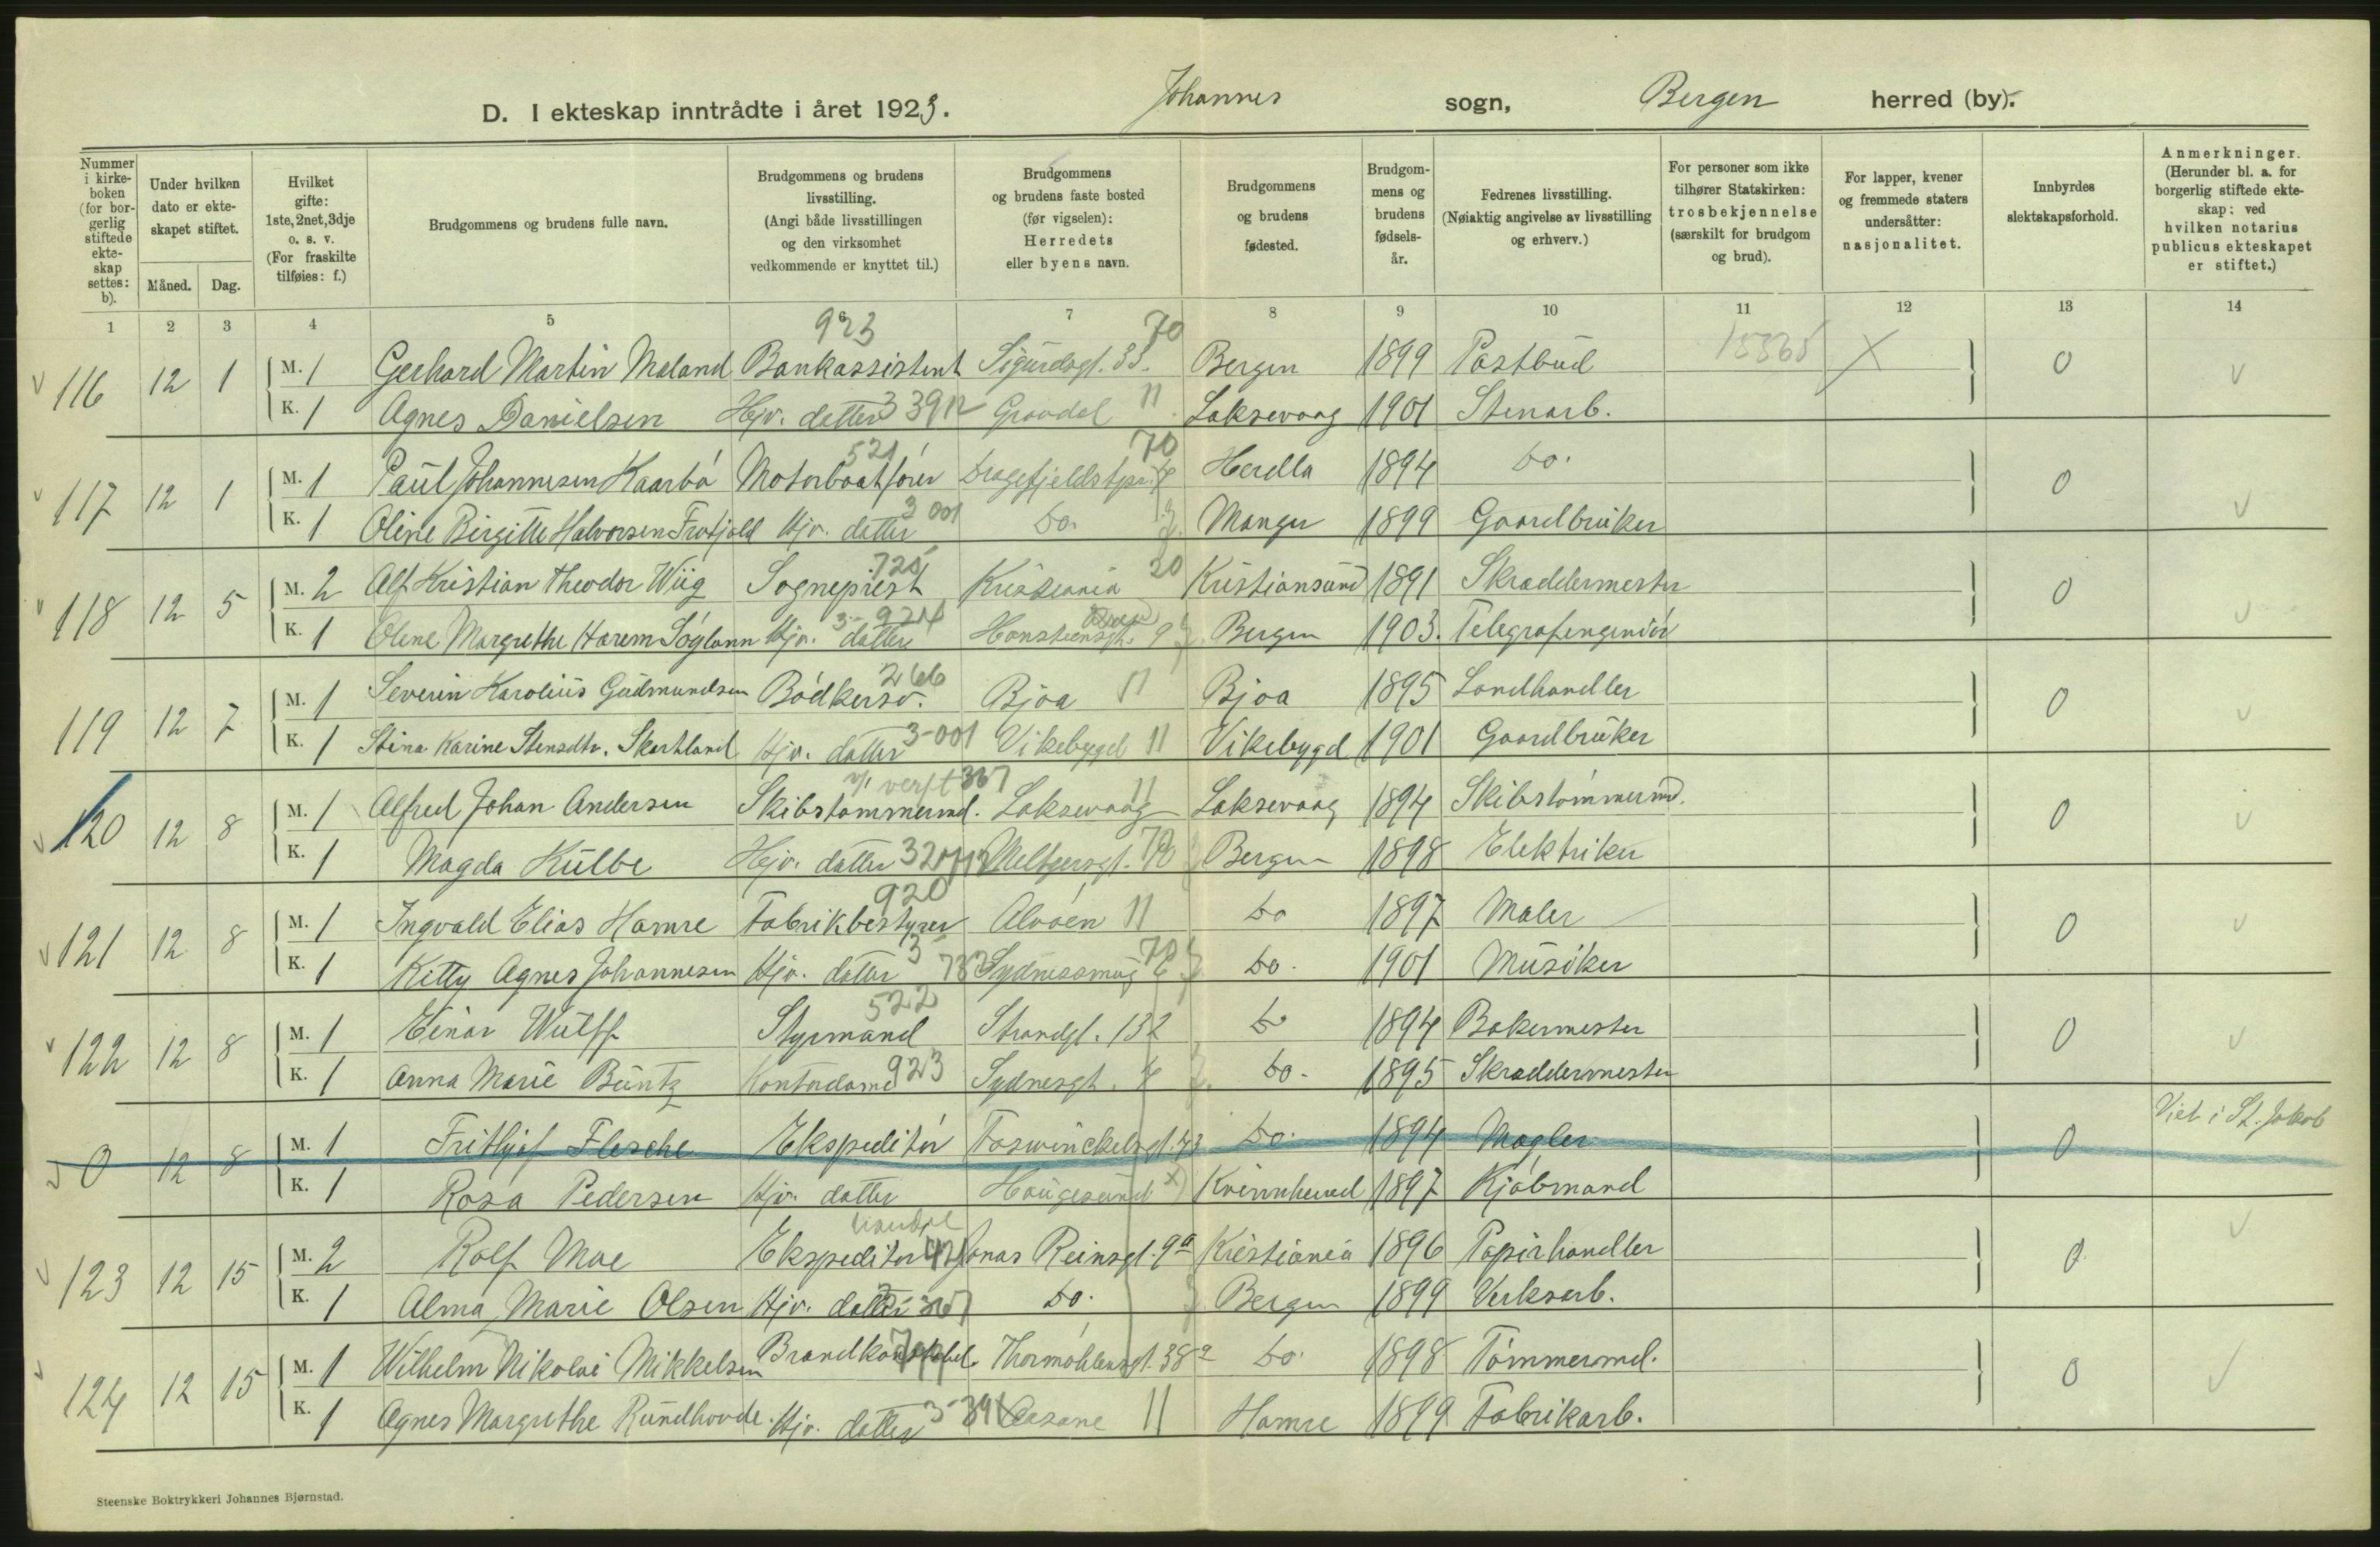 D. I ekteskap inntrådte i året 1923. Johannes sogn, Bergen herred (by).
Nummer i kirkeboken (for borgerlig stiftede ekteskap settes: b).
Under hvilken dato er ekteskapet stiftet.
Måned. Dag.
Hvilket gifte: 1ste, 2net, 3dje o. s. v. (For fraskilte tilføies: f.)
Brudgommens og brudens fulle navn.
Brudgommens og brudens livsstilling. (Angi både livsstillingen og den virksomhet vedkommende er knyttet til.)
Brudgommens og brudens faste bosted (før vigselen): Herredets eller byens navn.
Brudgommens og brudens fødested.
Brudgommens og brudens fødselsår.
Fedrenes livsstilling. (Nøiaktig angivelse av livsstilling og erhverv.)
For personer som ikke tilhører Statskirken: trosbekjennelse (særskilt for brudgom og brud).
For lapper, kvener og fremmede staters undersåtter: nasjonalitet.
Innbyrdes slektskapsforhold.
Anmerkninger. (Herunder bl. a. for borgerlig stiftede ekteskap: ved hvilken notarius publicus ekteskapet er stiftet.)
1 2 3 4 5 6 7 8 9 10 11 12 13 14
923 70
116 12 1 M. 1 Gerhard Martin Maland Bankassistent Sigurdsgt. 33. Bergen 1899 Postbud X 0
K. 1 Agnes Danielsen Hjv. datter 3 391 Gravdal 11 Laksevaag 1901 Stenarb.
521 70
117 12 1 M. 1 Paul Johannesen Kaarbö Motorbaatförer Herdla 1894 Do. 0
K. 1 Oline Birgitte Halvorsen Hjv. datter 3 001 Do. Manger 1899 Gaardbruker
725 20
118 12 5 M. 2 Alf Kristian Theodor Wiig Sogneprest Kristiania Kristiansund 1891 Skræddermester 0
K. 1 Olene Margrethe Harem Hjv. datter 3-924 9 Bergen 1903. Telegrafingeniör
266
119 12 7 M. 1 Severin Karolius Gudmundsen Bödkersv. Bjoa 11 Bjoa 1895 Landhandler 0
K. 1 Stina Karine Stensdtr. Skartland Hjv. datter 3-001 Vikebygd 11 Vikebygd 1901 Gaardbruker
v/ verft 367 11
120 12 8 M. 1 Alfred Johan Andersen Skibstömmermd. Laksevaag Laksevaag 1894 Skibstömmermd. 0
K. 1 Magda Külbe Hjv. datter Meltzersgt. Bergen 1898 Elektriker
920
121 12 8 M. 1 Ingvald Elias Hamre Fabrikbestyrer Alvöen 11 Do 1897 Maler 0
K. 1 Kitty Agnes Johannesen Hjv. datter 3 783 Sydnessmug 70 Do. 1901 Musiker
522
122 12 8 M. 1 Einar Wulff Styrmand Strandgt. 132 Do 1894 Bakermester 0
K. 1 Anna Marie Büntz Kontordame 923 Sydnesgt. 7 Do. 1895 Skræddermester
0 12 8 M. 1 Frithjof Flesche Ekspeditör Foswinckelsgt. 43 Do. 1894 Mægler 0 Viet i St. Jakob
K. 1 Rosa Pedersen Hjv. datter Haugesund x) Kvinnherred 1897 Kjöbmand
handel
123 12 15 M. 2 Rolf Moe Ekspeditör Jonas Reinsgt. 9a Kristiania 1896 Papirhandler 0
K. 1 Alma Marie Olsen Hjv. datter Do. Bergen 1899 Verksarb.
124 12 15 M. 1 Wilhelm Nikolai Mikkelsen Brandkonstabel. Thormöhlensgt. 38a Do. 1898 Tömmermd. 0
K. 1 Agnes Margrethe Rundhovde. Hjv. datter 3-391 Aasane 11 Hamre 1899 Fabrikarb.
Steenske Boktrykkeri Johannes Bjørnstad.